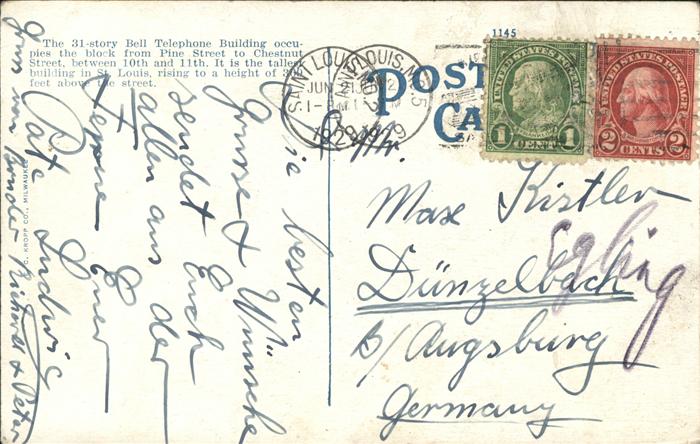 The 31-story Bell Telephone Building occu-
pies the block from Pine Street to Chestnut
Street, between 10th and 11th. It is the tallest
building in St. Louis, rising to a height of
feet above the street.
1145
POST
CA
SAINT LOUIS, MO.
JUN 2
1929
UNITED STATES POSTAGE
1 CENT 1
UNITED STATES POSTAGE
2 CENTS 2
Mr.
Max Kistler
Egling
Dünzelbach
b/Augsburg
Germany
Die besten
Grüsse & Wünsche
sendet Euch
allen aus der
Euer
Pate Ludwig
Gruss von Bruder Richard & Peter
C. KROPP CO., MILWAUKEE